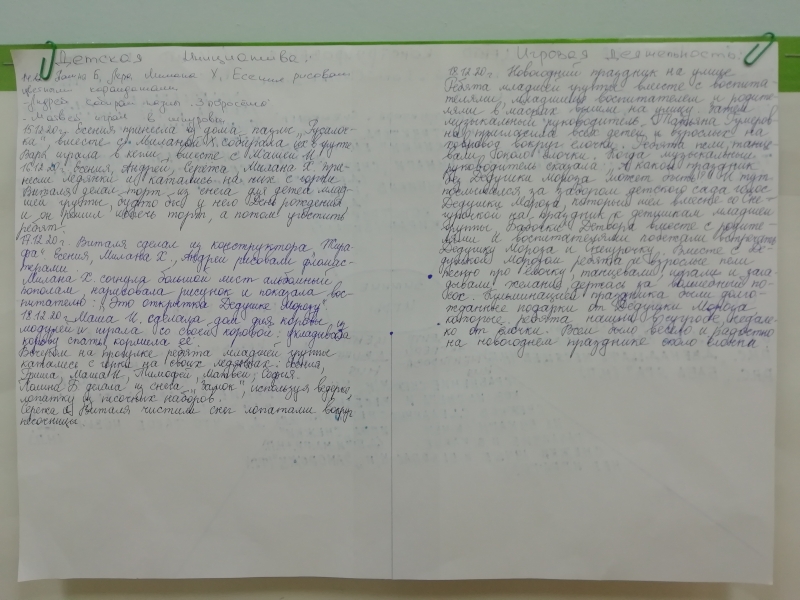 Детская инициатива:
Милана Х, Есения рисовали
карандашами.
- Андрей собирал
- Матвей играл в шнуровки
15.12.20г. Есения принесла из дома пазлы "Русалоч-
ки", вместе с Миланой Х. собирала их в группе
Варя играла в кени, вместе с Машей И.
16.12.20г Есения, Андрей, Сережа, Милана Х при-
несли ледянки и катались на них с горки.
Виталя делал торт из снега для детей млад-
шей группы, будто бы у него день рождения
и он решил испечь торт, а потом угостить
ребят.
17.12.20г. Виталя сделал из конструктора "Жира-
фа" Есения, Милана Х., Андрей рисовали флома-
стерами.
Милана Х. согнула большой лист альбомный
пополам, нарисовала рисунок и показала вос-
питателю: "Это открытка Дедушке Морозу"
18.12.20г. Маша И. сделала дом для коровы из
модулей и играла со своей коровой: укладывала
корову спать, кормила её.
Вечером на прогулке ребята младшей группы
катались с горки на своих ледянках: Есения,
Гриша, Маша И, Тимофей, Матвей, София,
Полина Б делала из снега "Замок", используя ведерко,
лопатку из песочных наборов.
Сережа и Виталя чистили снег лопатами вокруг
песочницы.
Игровая деятельность:
18.12.20г. Новогодний праздник на улице
Ребята младшей группы вместе с воспита-
телями, младшим воспитателем и родите-
лями в масках вышли на улицу. Затем
музыкальный руководитель, Татьяна
пригласила всех детей и взрослых на
хоровод вокруг ёлочки. Ребята пели, танце-
вали около ёлочки. Тогда музыкальный
руководитель сказала: "А какой праздник
без Дедушки Мороза может быть?" И тут
послышался за забором детского сада голос
Дедушки Мороза, который шел вместе со Сне-
гурочкой на праздник к детушкам младшей
группы. Детвора вместе с родите-
лями и воспитателями побежали встречать
Дедушку Мороза и Снегурочку. Вместе с Де-
душкой Морозом ребята и взрослые пели
песню про ёлочку, танцевали, играли и зага-
дывали желания держась за волшебный по-
сох. Кульминацией праздника были долго-
жданные подарки от Дедушки Мороза
которые ребята нашли в сугробе, недале-
ко от ёлочки. Всем было весело и радостно
на новогоднем празднике около ёлочки.